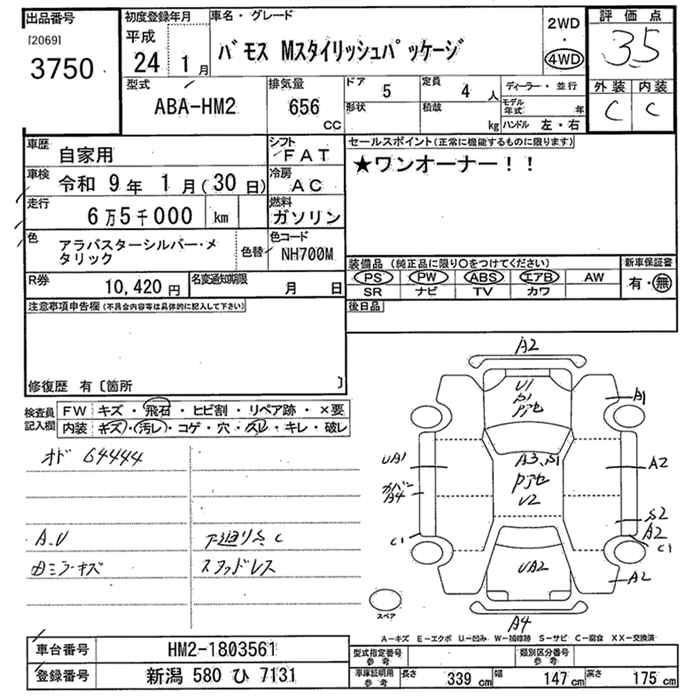 出品番号
[2069]
3750
初度登録年月
平成
24 1月
車名・グレード
バモス Mスタイリッシュパッケージ
2WD
・
4WD
評価点
3.5
型式
ABA-HM2
排気量
656
cc
ドア 5
形状
定員 4 人
積載 kg
ディーラー・並行
モデル年式 年
ハンドル 左・右
外装 内装
C C
車歴 自家用
シフト
FAT
車検 令和 9年 1月(30日)
冷房
AC
走行 6万5千000 km
燃料
ガソリン
色 アラバスターシルバー・メ
タリック
色替
色コード
NH700M
R券 10,420円
名変通知期限 月 日
セールスポイント(正常に機能するものに限ります)
★ワンオーナー!!
装備品 (純正品に限り○をつけてください)
新車保証書
PS PW ABS エアB AW
SR ナビ TV カワ
有・無
後日品
注意事項申告欄(不具合内容等は具体的に記入して下さい)
修復歴 有〔箇所 〕
検査員
記入欄
FW キズ・飛石・ヒビ割・リペア跡・×要
内装 キズ・汚レ・コゲ・穴・スレ・キレ・破レ
オド 64444
A.U
下廻りS.C
田ミラーキズ
スタッドレス
A2
U1
A1
UA1
A3
A2
カバー
A4
U2
S2
A2
C1
C1
UA2
A2
スペア
A4
A-キズ E-エクボ U-凹み W-補修跡 S-サビ C-腐食 XX-交換済
車台番号 HM2-1803561
登録番号 新潟 580 ひ 7131
型式指定番号
参考
類別区分番号
参考
車庫証明用
参考
長さ 339 cm
幅 147 cm
高さ 175 cm